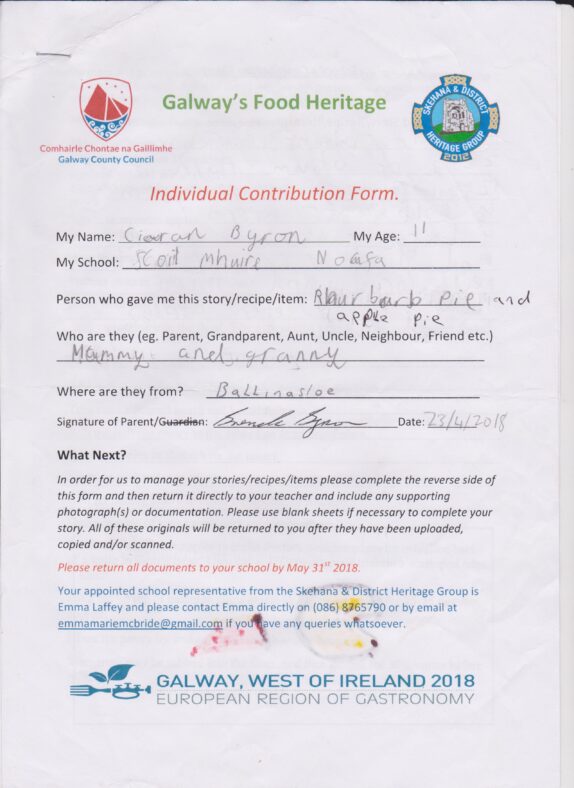 Galway's Food Heritage
SKEHANA & DISTRICT
HERITAGE GROUP
2012
Comhairle Chontae na Gaillimhe
Galway County Council
Individual Contribution Form.
My Name: Ciaran Byron My Age: 11
My School: Scoil Mhuire
Person who gave me this story/recipe/item: Rhurbarb pie and
apple pie
Who are they (eg. Parent, Grandparent, Aunt, Uncle, Neighbour, Friend etc.)
Mammy and granny
Where are they from? Ballinasloe
Signature of Parent/Guardian: Byron Date: 23/4/2018
What Next?
In order for us to manage your stories/recipes/items please complete the reverse side
of this form and then return it directly to your teacher and include any supporting
photograph(s) or documentation. Please use blank sheets if necessary to complete your
story. All of these originals will be returned to you after they have been uploaded,
copied and/or scanned.
Please return all documents to your school by May 31st 2018.
Your appointed school representative from the Skehana & District Heritage Group is
Emma Laffey and please contact Emma directly on (086) 8765790 or by email at
emmamariemcbride@gmail.com if you have any queries whatsoever.
GALWAY, WEST OF IRELAND 2018
EUROPEAN REGION OF GASTRONOMY